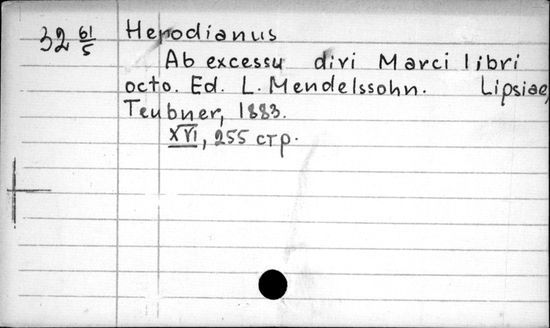 32 61/5
Herodianus
Ab excessu divi Marci libri
octo. Ed. L. Mendelssohn. Lipsiae,
Teubner, 1883.
XVI, 255 стр.